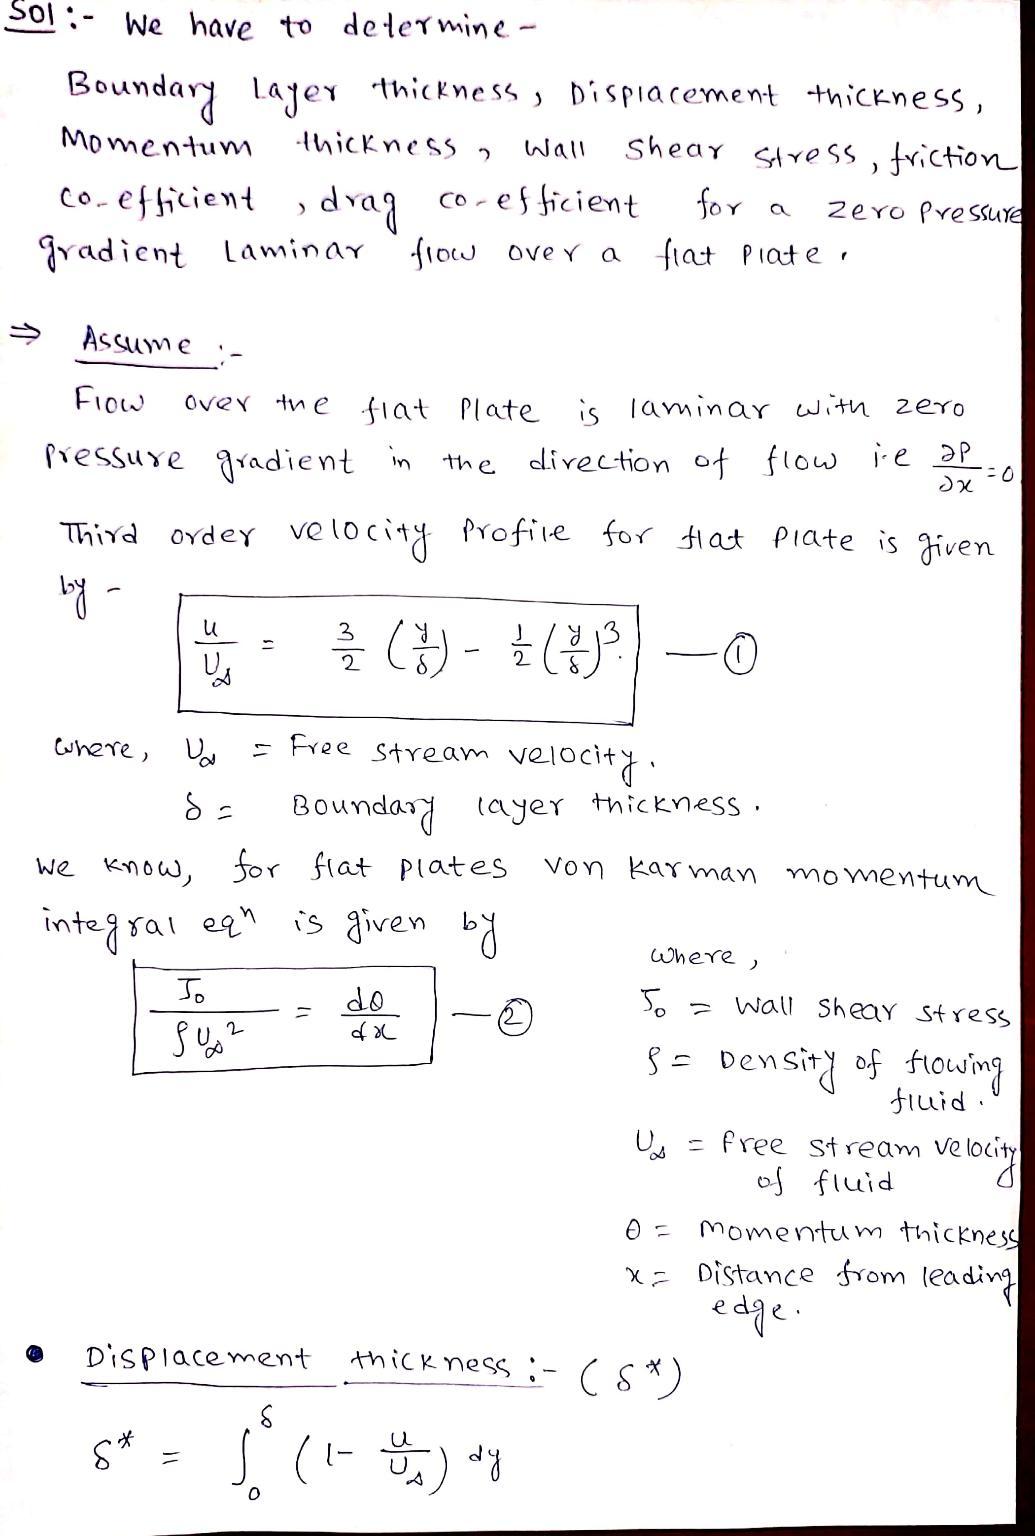 Sol :- We have to determine -
Boundary Layer thickness, Displacement thickness,
Momentum thickness, Wall Shear Stress, friction
co-efficient, drag co-efficient for a zero Pressure
gradient Laminar flow over a flat Plate.
⇒ Assume :-
Flow over the flat Plate is laminar with zero
Pressure gradient in the direction of flow i.e ∂P/∂x = 0
Third order velocity Profile for flat Plate is given
by -
u/U∞ = 3/2 (y/δ) - 1/2 (y/δ)³. — ①
where, U∞ = Free stream velocity.
δ = Boundary layer thickness.
We know, for flat plates von karman momentum
integral eqⁿ is given by
τ₀/ρU∞² = dθ/dx — ②
where,
τ₀ = Wall Shear stress
ρ = Density of flowing
fluid.
U∞ = free stream velocity
of fluid
θ = momentum thickness
x = Distance from leading
edge.
• Displacement thickness :- (δ*)
δ* = ∫₀^δ (1 - u/U∞) dy